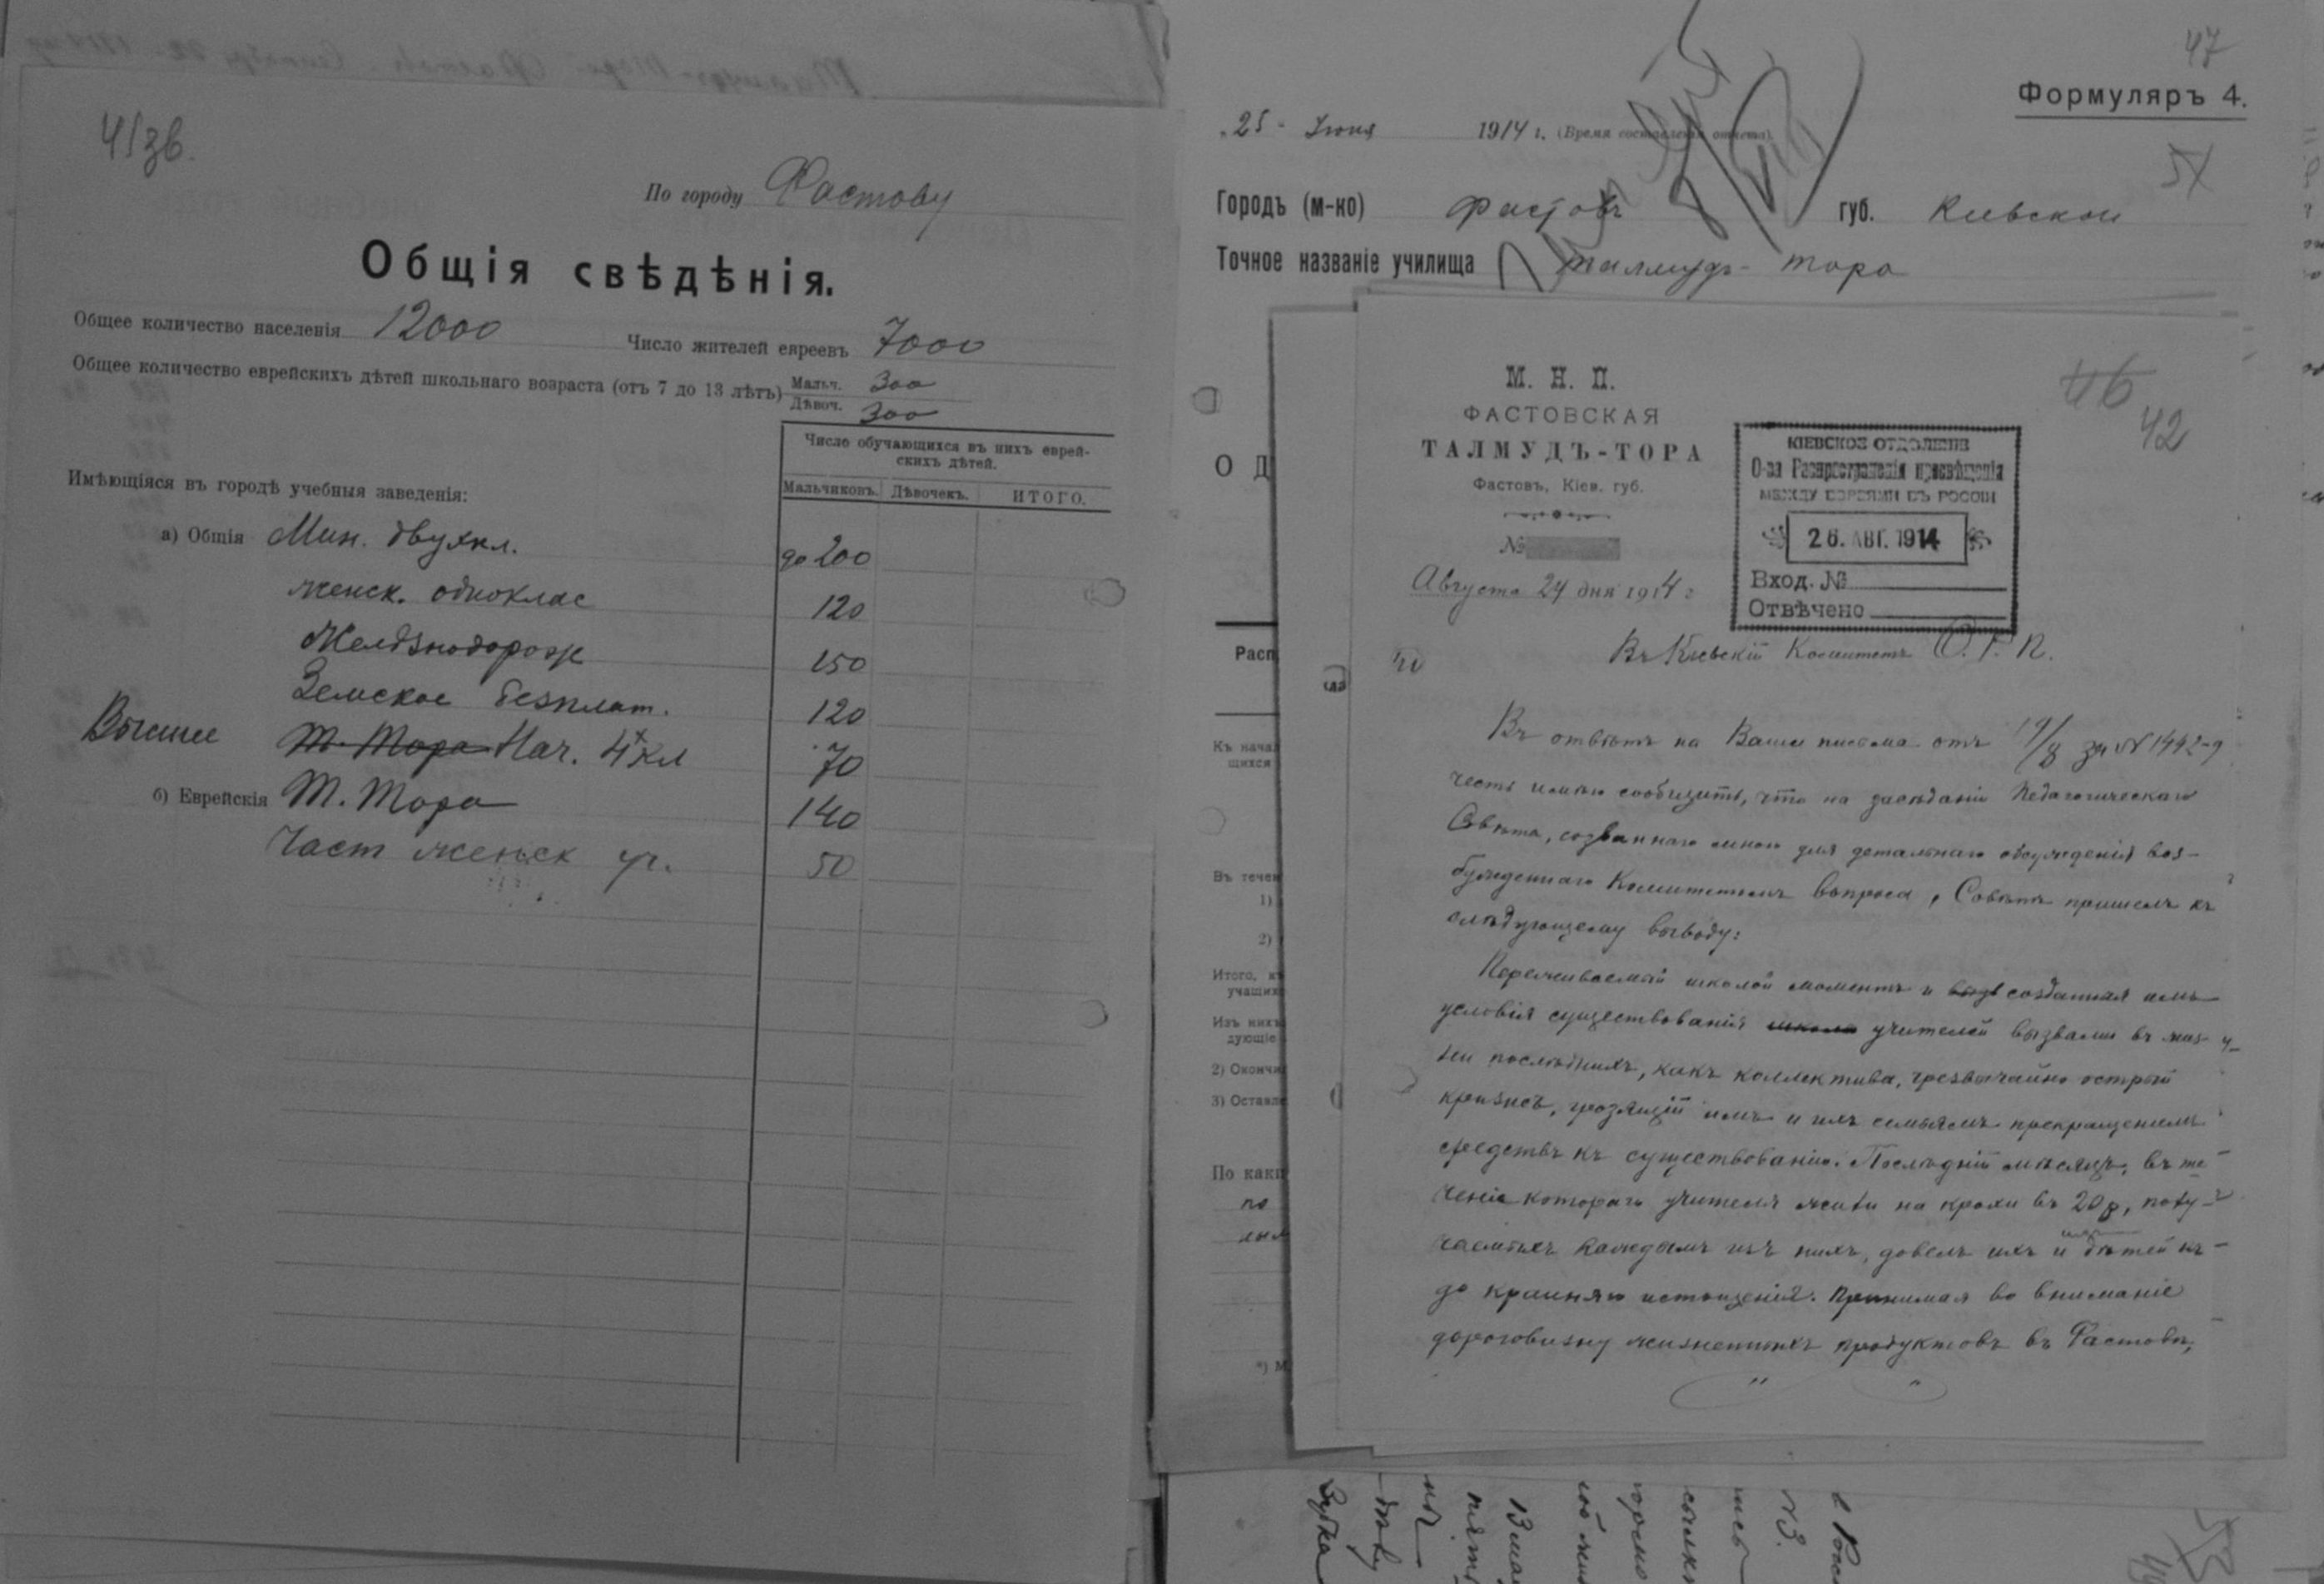 41 зв.
По городу Фастову
Общія свѣдѣнія.
Общее количество населенія 12000 Число жителей евреевъ 7000
Общее количество еврейскихъ дѣтей школьнаго возраста (отъ 7 до 13 лѣтъ) Мальч. 300
Дѣвоч. 300
Число обучающихся въ нихъ еврей-
скихъ дѣтей.
Имѣющіяся въ городѣ учебныя заведенія:
Мальчиковъ. Дѣвочекъ. ИТОГО.
а) Общія Мин. двухкл. до 200
женск. одноклас 120
Желѣзнодорож 150
Земское безплат. 120
Высшее Т. Тора Нач. 4х кл 70
б) Еврейскія Т. Тора 140
Част женск уч. 50
47
Формуляръ 4.
25 Іюня 1914 г. (Время составленія отвѣта).
57
Городъ (м-ко) Фастовъ губ. Кіевской
Точное названіе училища Талмудъ-Тора
О Д
Расп
Къ нача
щихся
Въ течен
1)
2)
Итого, к
учащих
Изъ нихъ
дующіе
2) Оконч
3) Оставл
По каки
по
М. Н. П.
ФАСТОВСКАЯ
ТАЛМУДЪ-ТОРА
Фастовъ, Кіев. губ.
№
Августа 24 дня 1914 г
46
42
КІЕВСКОЕ ОТДѢЛЕНІЕ
О-ва Распространенія просвѣщенія
МЕЖДУ ЕВРЕЯМИ ВЪ РОССІИ
26. АВГ. 1914
Вход. №
Отвѣчено
Въ Кіевскій Комитетъ О. П.
Въ отвѣтъ на Ваши письма отъ 19/8 за № 1492-9
честь имѣю сообщить, что на засѣданіи Педагогическаго
Совѣта, созваннаго мною для детальнаго обсужденія воз-
бужденнаго Комитетомъ вопроса, Совѣтъ пришелъ къ
слѣдующему выводу:
Переживаемый школой моментъ и созданныя имъ
условія существованія учителей вызвали въ жиз-
ни послѣднихъ, какъ коллектива, чрезвычайно острый
кризисъ, грозящій имъ и ихъ семьямъ прекращеніемъ
средствъ къ существованію. Послѣдній мѣсяцъ, въ те-
ченіе котораго учителя жили на крохи въ 20 р, полу-
чаемыхъ каждымъ изъ нихъ, довелъ ихъ и дѣтей ихъ
до крайняго истощенія. Принимая во вниманіе
дороговизну жизненныхъ продуктовъ въ Фастовѣ,